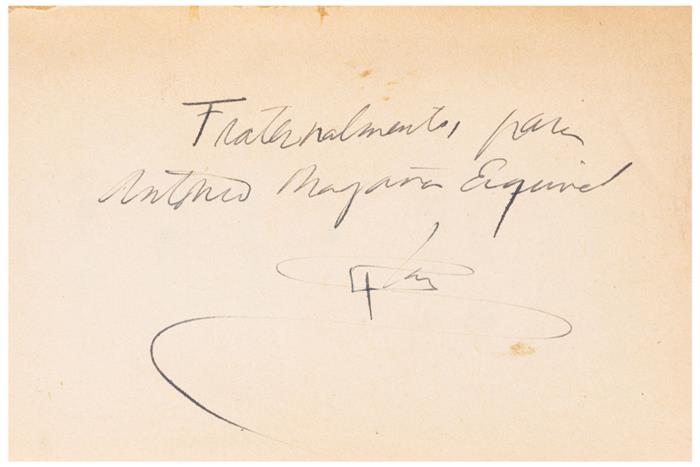 Fraternalmente, para
Antonio Magaña Esquivel